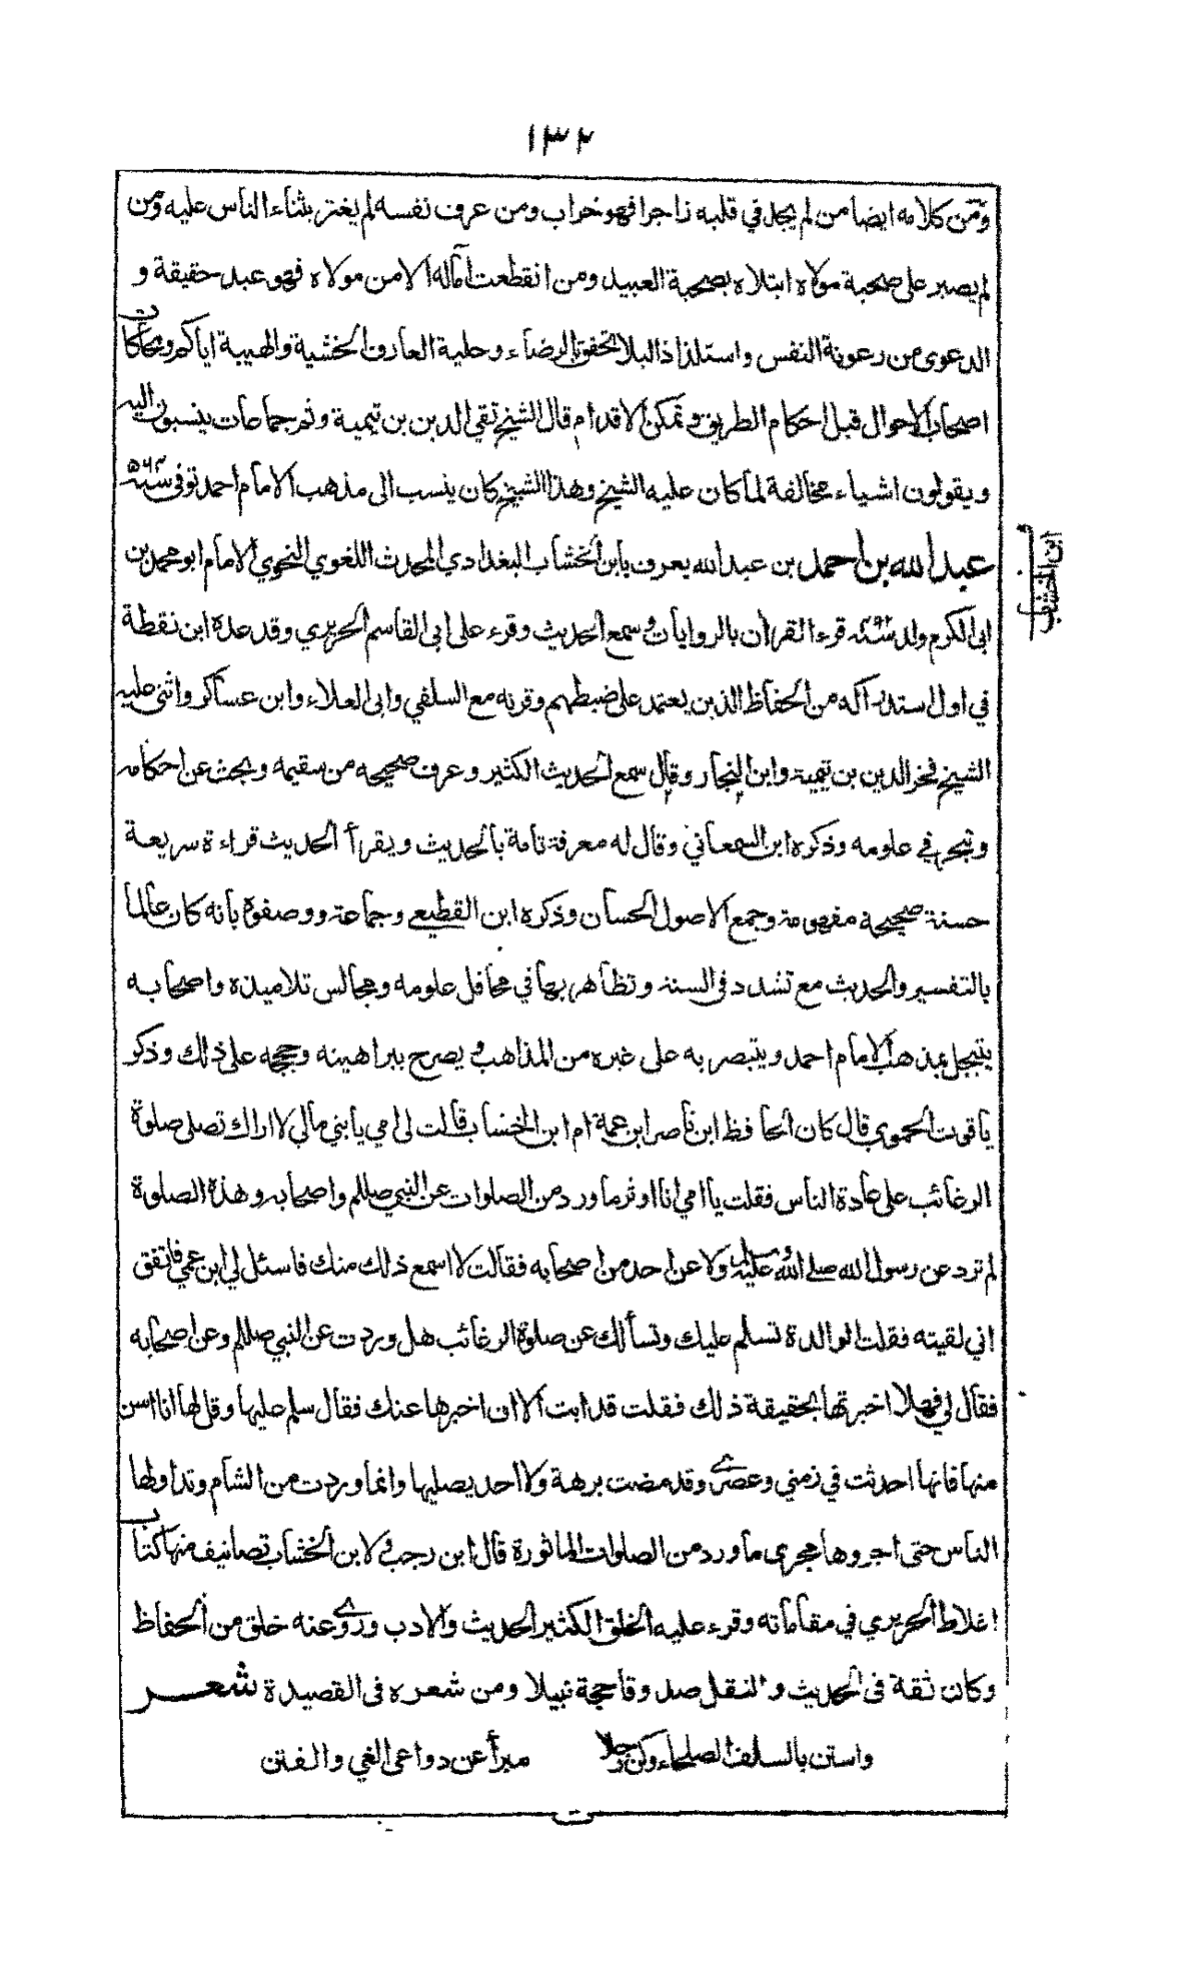 ١٣٢
ومن كلامه ايضا من لم يجد في قلبه زاجرا فهو خراب ومن عرف نفسه لم يغتر بثناء الناس عليه ومن
لم يصبر على صحبة مولاه ابتلاه بصحبة العبيد ومن انقطعت آماله الا من مولاه فهو عبد حقيقة و
الدعوى من رعونة النفس واستلذاذ البلا تحقق بالرضاء وحلية العارف الخشية والهيبة اياكم ومحاكات
اصحاب الاحوال قبل احكام الطريق وتمكن الاقدام قال الشيخ تقي الدين بن تيمية وثم جماعات ينسبون اليه
ويقولون اشياء مخالفة لما كان عليه الشيخ وهذا الشيخ كان ينسب الى مذهب الامام احمد توفى سنة ٥٦٣
عبد الله بن احمد بن عبد الله يعرف بابن الخشاب البغدادي المحدث اللغوي النحوي الامام ابو محمد بن
ابن الخشاب
ابى الكرم ولد سنة ٤٩٢ قرء القران بالروايات وسمع الحديث وقرء على ابى القاسم الحريري وقد عده ابن نقطة
في اول استدراكه من الحفاظ الذين يعتمد على ضبطهم وقرنه مع السلفي وابى العلاء وابن عساكر واثنى عليه
الشيخ فخر الدين بن تيمية وابن النجار وقال سمع الحديث الكثير وعرف صحيحه من سقيمه وبحث عن احكامه
وتبحر في علومه وذكره ابن السمعاني وقال له معرفة تامة بالحديث ويقرأ الحديث قراءة سريعة
حسنة صحيحة مفهومة وجمع الاصول الحسان وذكره ابن القطيعي وجماعة ووصفوه بانه كان عالما
بالتفسير والحديث مع تشدد فى السنة وتظاهر بها في محافل علومه ومجالس تلاميذه واصحابه
يتبجل بمذهب الامام احمد ويتبصر به على غيره من المذاهب و يصرح ببراهينه وحججه على ذلك وذكر
ياقوت الحموي قال كان الحافظ ابن ناصر ابن عمة ام ابن الخشاب قالت لى امي يا بني مالي لا اراك تصلى صلوة
الرغائب على عادة الناس فقلت يا امي انا اوثر ما ورد من الصلوات عن النبي صللم واصحابه وهذه الصلوة
لم ترد عن رسول الله صلى الله عليه وسلم ولا عن احد من اصحابه فقالت لا اسمع ذلك منك فاسئل لي ابن عمي فاتفق
اني لقيته فقلت الوالدة تسلم عليك وتسألك عن صلوة الرغائب هل وردت عن النبي صللم وعن اصحابه
فقال لي فهلا اخبرتها بحقيقة ذلك فقلت قد ابت الا ان اخبرها عنك فقال سلم عليها وقل لها انا اسن
منها فانها احدثت في زمني وعصري وقد مضت برهة ولا احد يصليها وانما وردت من الشام وتداولها
الناس حتى اجروها مجرى ما ورد من الصلوات الماثورة قال ابن رجب و لابن الخشاب تصانيف منها كتاب
اغلاط الحريري في مقاماته وقرء عليه الخلق الكثير الحديث والادب وروى عنه خلق من الحفاظ
وكان ثقة فى الحديث والنقل صدوقا حجة نبيلا ومن شعره فى القصيدة شعر
واستن بالسلف الصلحاء وكن رجلا مبرأ عن دواعى الغي والفتن
ت